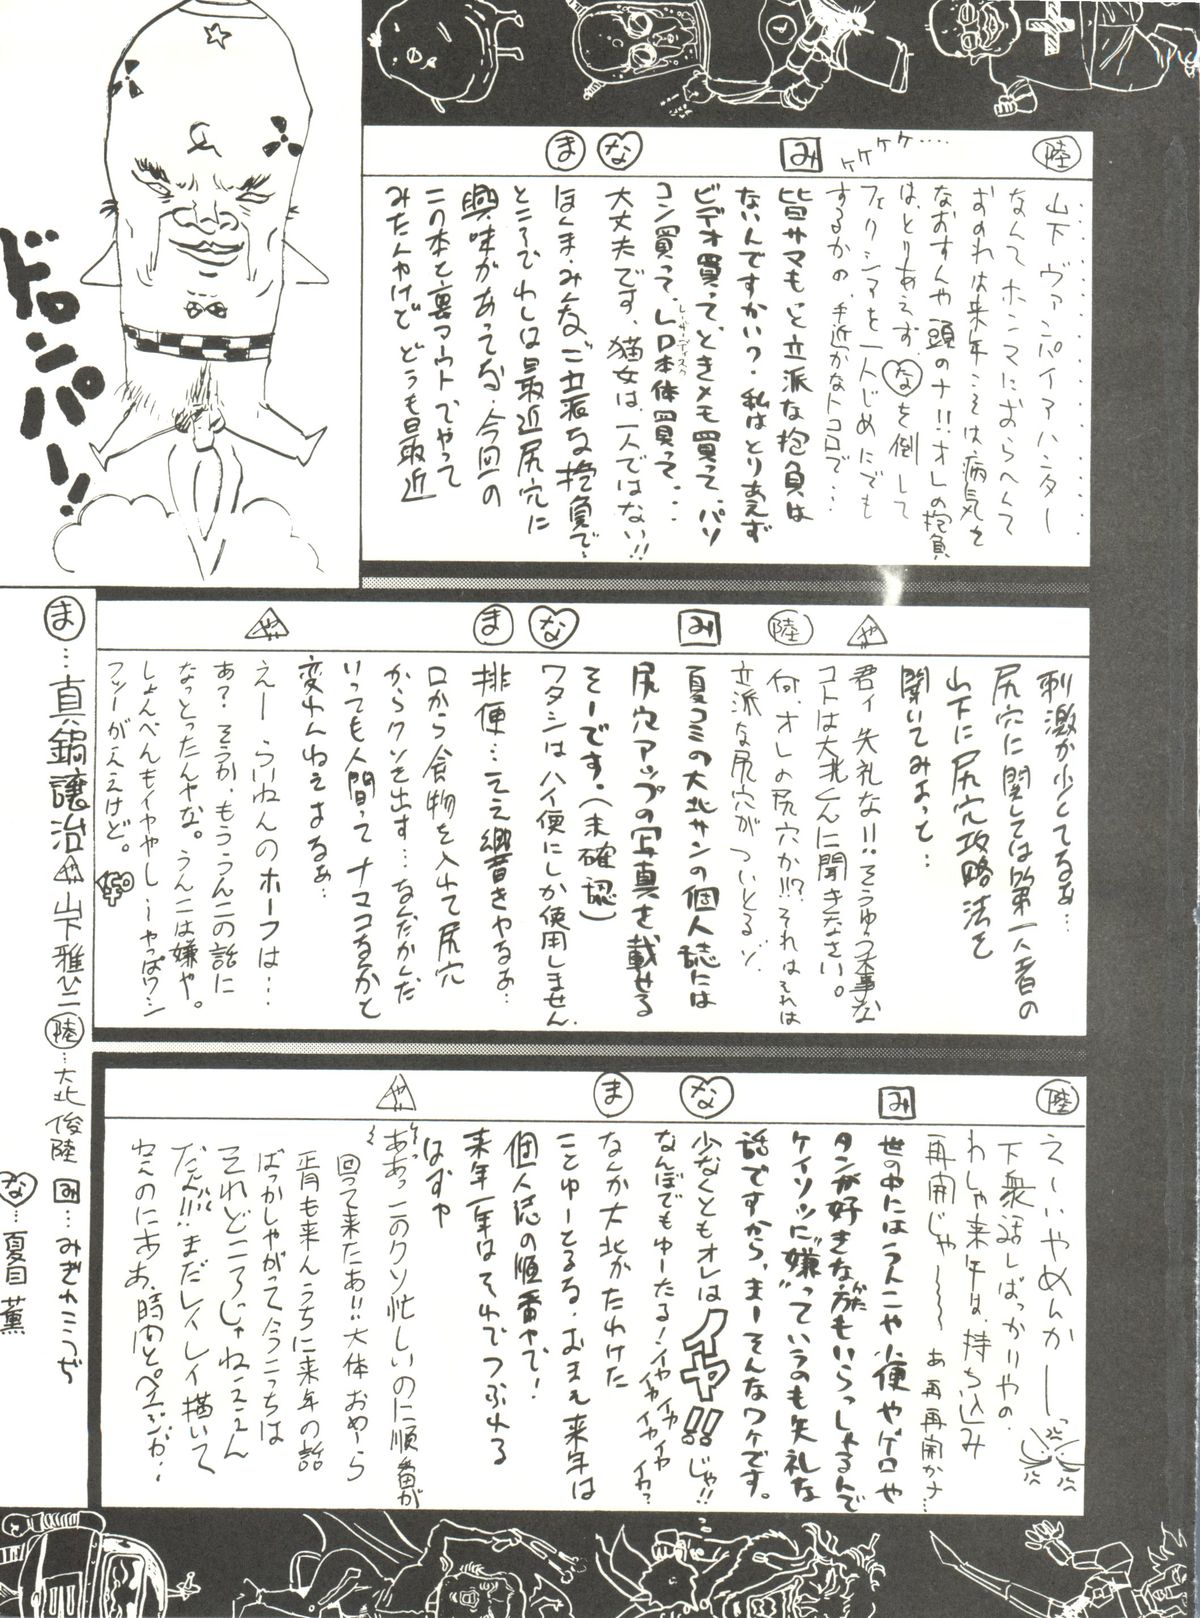 陸
山下…ヴァンパイアハンター……
なんてホンマにおらへんて
おのれは来年こそは病気を
なおすんや頭のナ!!オレの抱負
は、とりあえず、なを倒して
フェリシアを一人じめにでも
するかの、手近かなトコロで…
ケケケケ……
み
皆サマもっと立派な抱負は
ないんですかい?私はとりあえず
ビデオ買って、ときメモ買って、パソ
コン買って、LD本体買って…
レーザーディスク
な
大丈夫です、猫女は、一人ではない!!
ま
ほくま・みんなご立派な抱負で…
ところでわしは最近尻穴に
興味があってな、今回の
この本と裏マウトでやって
みたんやけどどうも最近
ドロンパー!!
刺激が少くてるぁ…
尻穴に関しては第一人者の
山下に尻穴攻略法を
聞いてみよっと…
や
君ィ失礼な!!そうゆう大事な
コトは大北くんに聞きなさい。
陸
何、オレの尻穴か!!?それはそれは
立派な尻穴がついとるゾ
み
夏コミの大北サンの個人誌には
尻穴アップの写真を載せる
そーです。(未確認)
な
ワタシはハイ便にしか使用しません。
ま
排便…ええ響きやなぁ…
口から食物を入れて尻穴
からクソを出す…なんだかんだ
いっても人間ってナマコなんかと
変わんねぇよなぁ…
や
えー らいねんのホーフは…
あ?そうか、もううんこの話に
なっとったんやな。うんこは嫌や。
しょんべんもイヤやし…やっぱワシ
フツーがええけど。
陸
えーいやめんかーっ
下衆話しばっかりやの
わしゃ来年は、持ち込み
再開じゃ~~~ あ再再開かナ…
み
世の中にはうんこや小便やゲロや
タンが好きな方もいらっしゃるんで
がた
ケイソツに"嫌"っていうのも失礼な
話ですから、まーそんなワケです。
な
少なくともオレはイヤ!!じゃ!!
なんぼでもゆーたる!イヤイヤイヤ
イヤイヤイヤイカ?
ま
なんか大北がたわけた
ことゆーとるる・おまえ来年は
個人誌の順番やで!
来年一年はそれでつぶれる
はずや
や
ああっこのクソ忙しいのに順番が
回って来たあ!!大体おめーら
正月も来んうちに来年の話
ばっかしゃがって今こっちは
それどころじゃねええん
だ!!!まだレイレイ描いて
ねえのにああ、時間とページが…
ま…真鍋譲治 や…山下雅ひこ 陸…大北俊陸 み…みぎわこうぢ
な…夏目薫